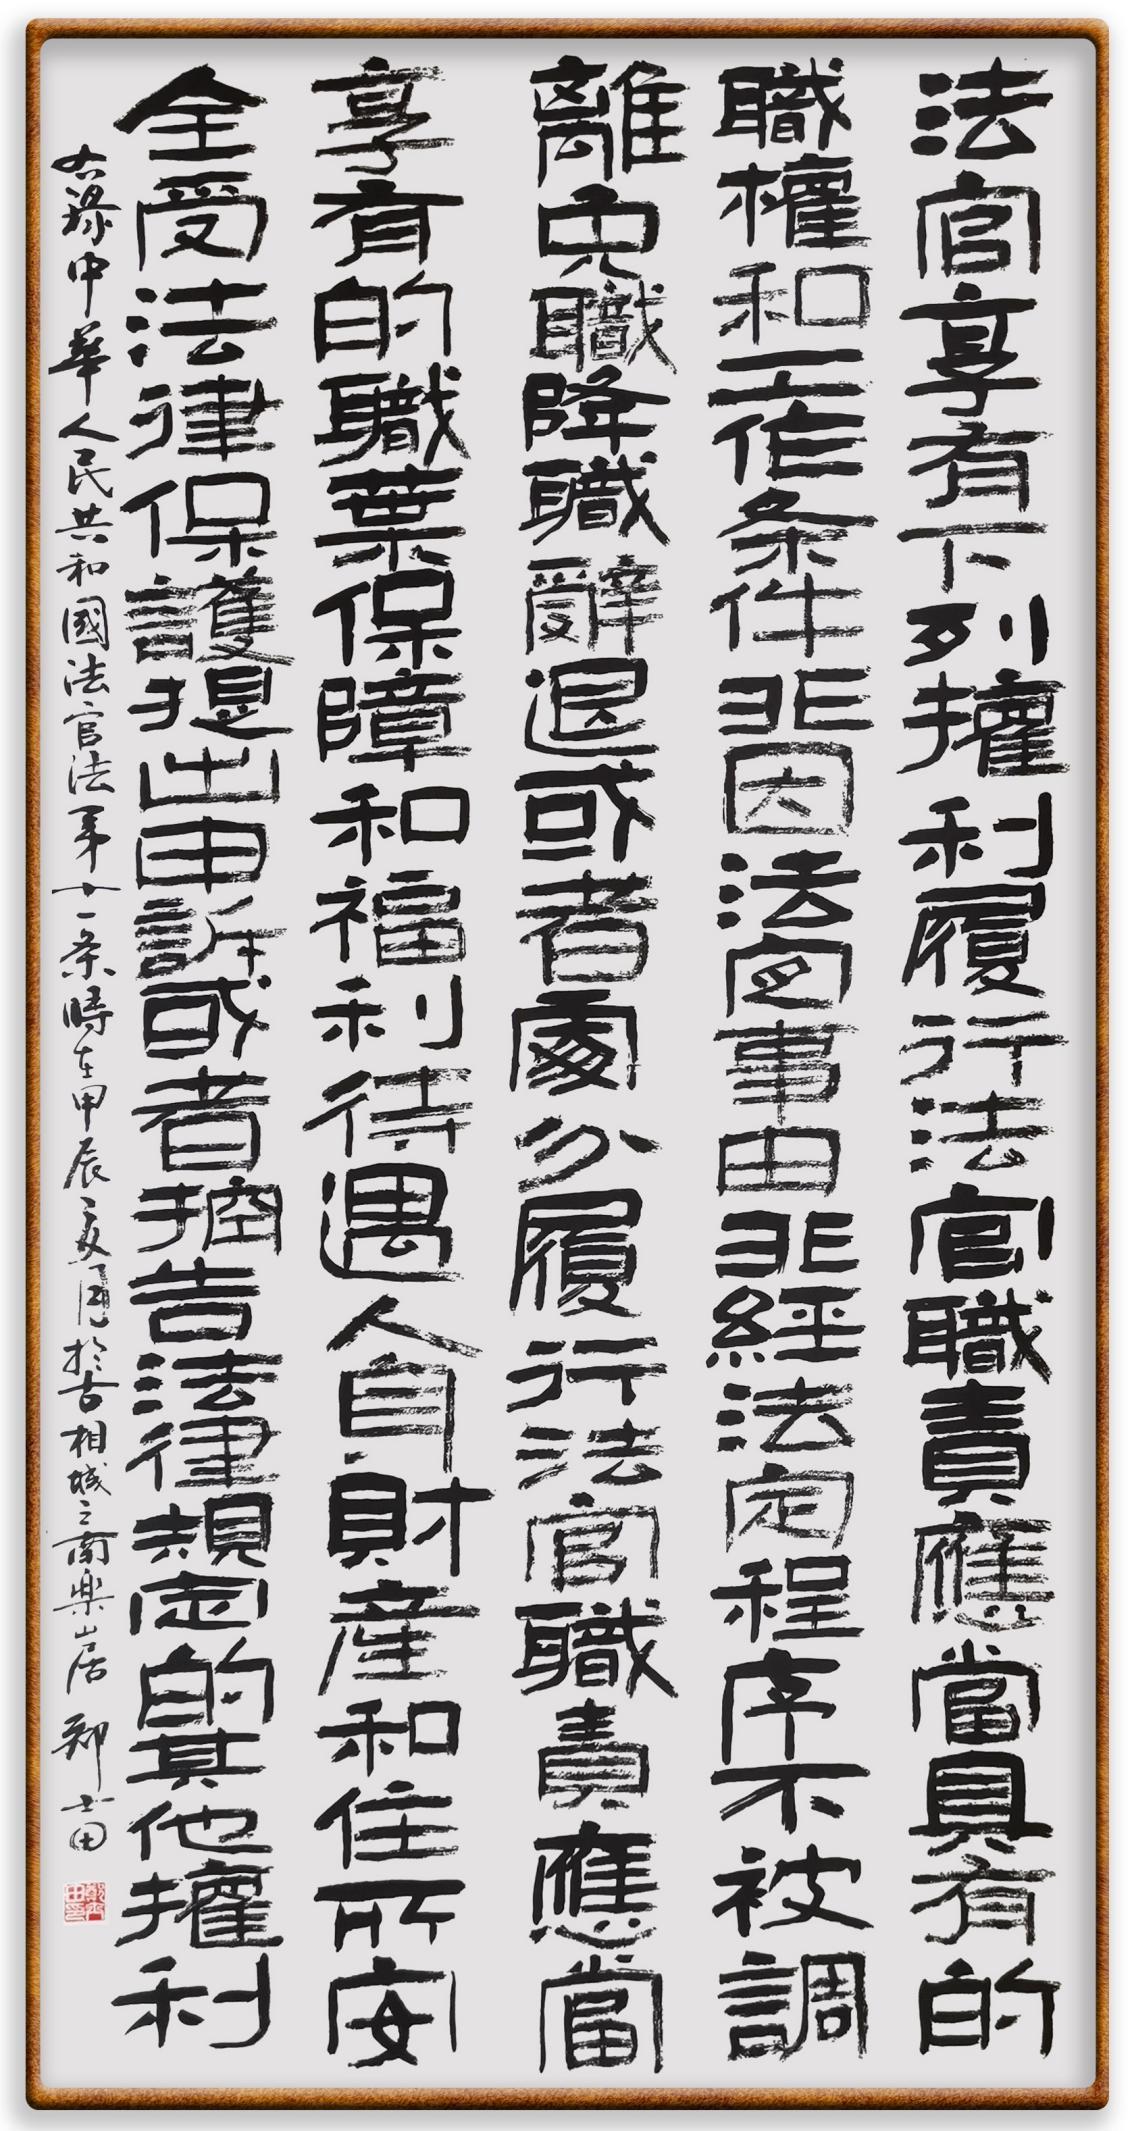 法官享有下列權利履行法官職責應當具有的
職權和工作条件非因法定事由非經法定程序不被調
離免職降職辭退或者處分履行法官職責應當
享有的職業保障和福利待遇人身財產和住所安
全受法律保護提出申訴或者控告法律規定的其他權利
右録中華人民共和國法官法第十一条時在甲辰夏月於古相城之南樂山居 鄭士田